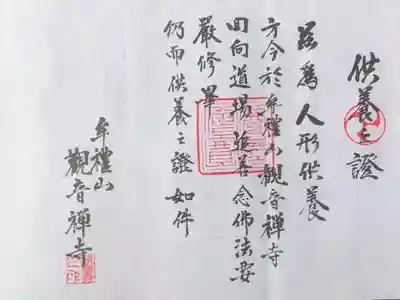 供養之證
茲為人形供養
方今於牟禮山觀音禅寺
回向道場追善念佛法要
嚴修畢
仍而供養之證如件
牟禮山
觀音禅寺